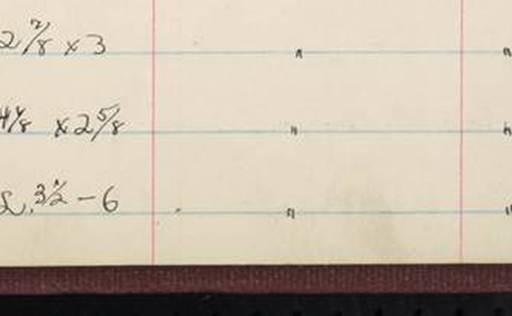 2 7/8 x 3 " "
4 1/8 x 2 5/8 " "
3 1/2 - 6 " "